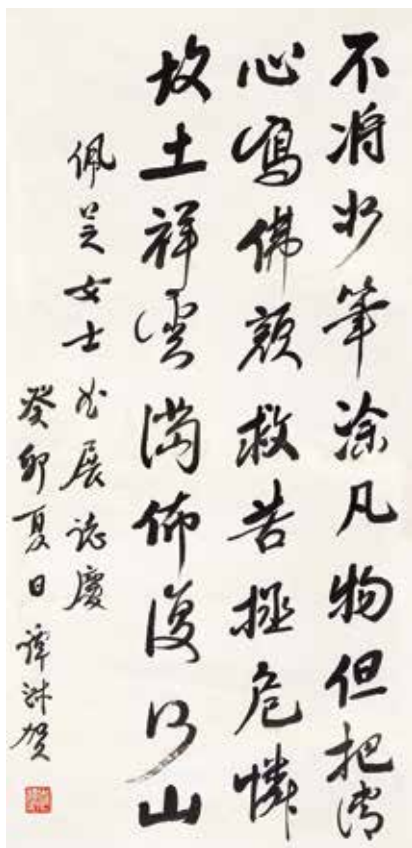 不将妙筆涂凡物但把清
心寫佛顏救苦拯危憐
故土祥雲滿佈復河山
佩芝女士书展誌慶
癸卯夏日 譚贺